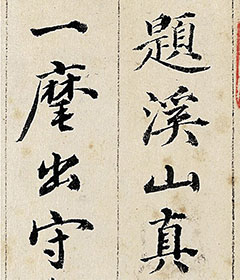 題溪山真
一麾出守